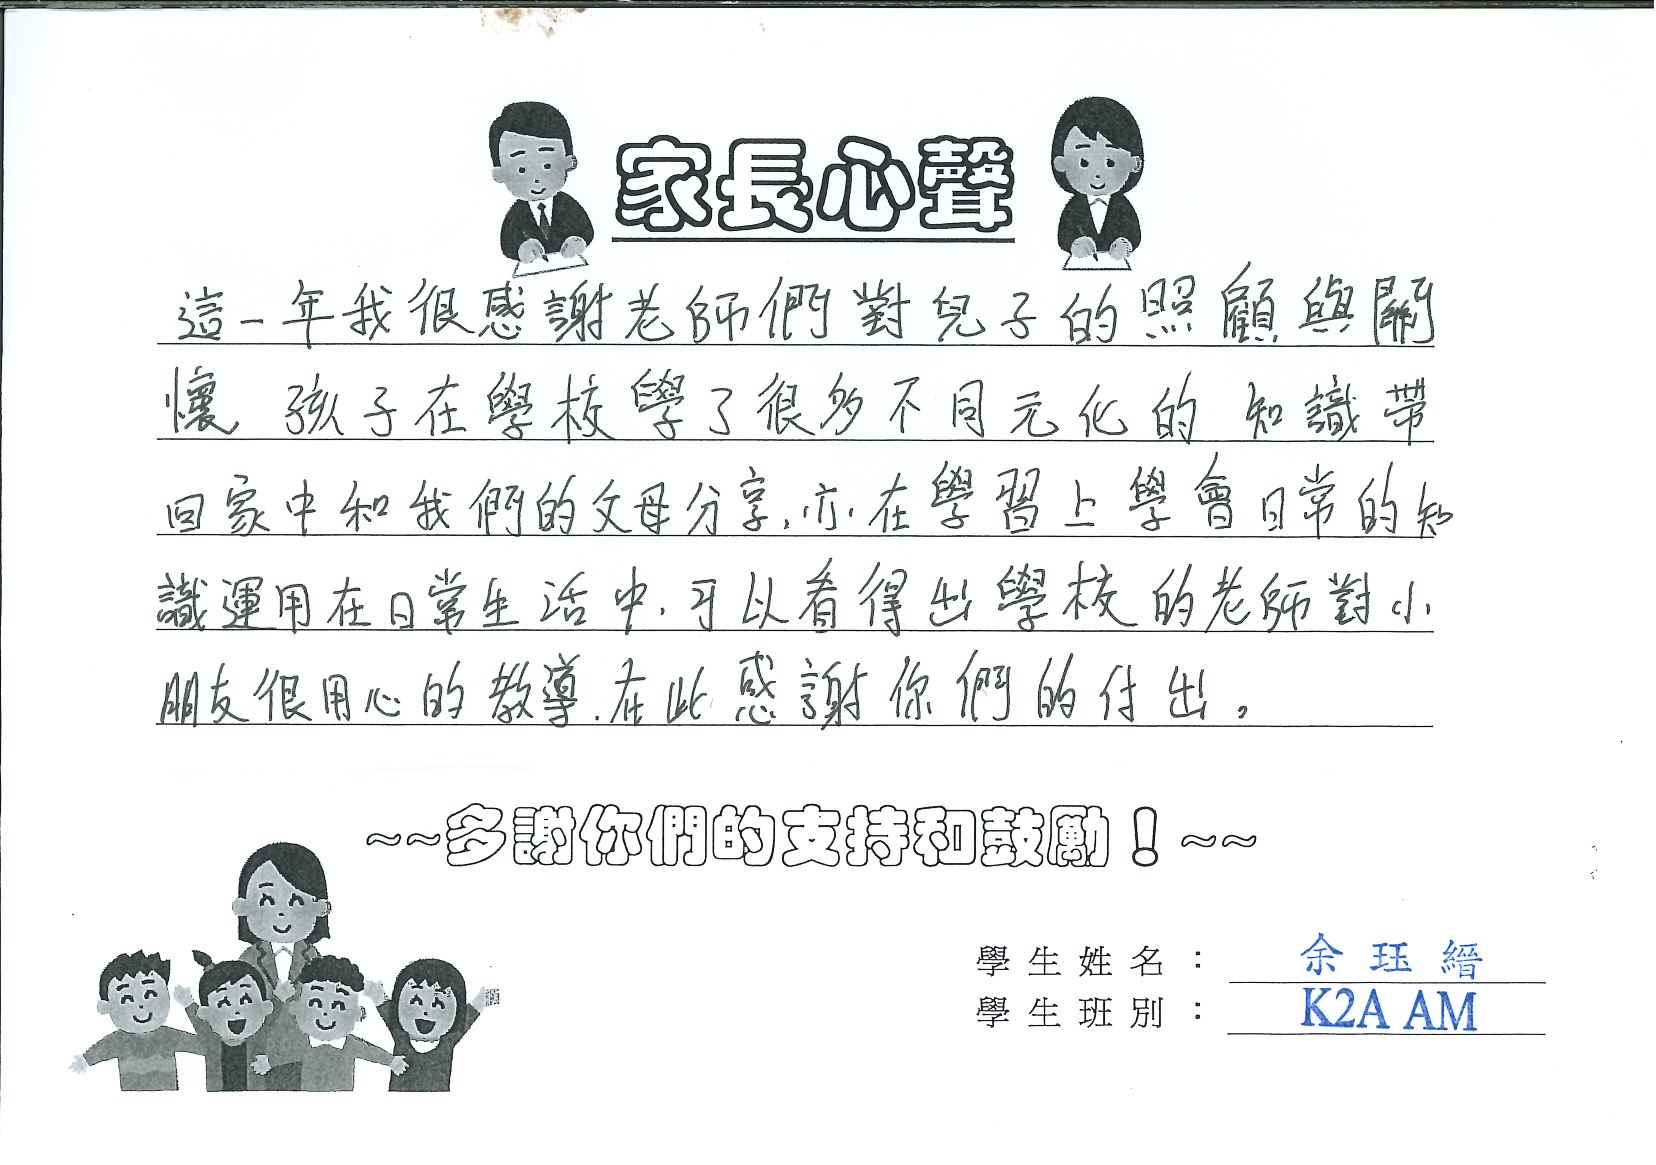 家長心聲
這一年我很感謝老師們對兒子的照顧與關
懷 孩子在學校學了很多不同元化的知識帶
回家中和我們的父母分享,亦在學習上學會日常的知
識運用在日常生活中,可以看得出學校的老師對小
朋友很用心的教導.在此感謝你們的付出。
~~多謝你們的支持和鼓勵!~~
學生姓名: 余珏縉
學生班別: K2A AM